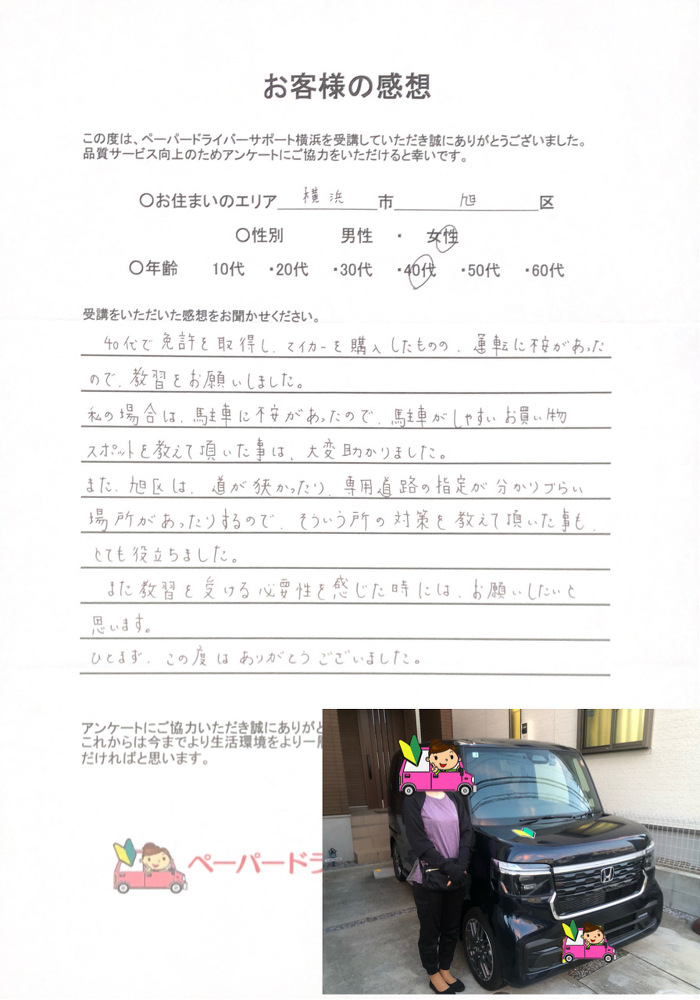 お客様の感想
この度は、ペーパードライバーサポート横浜を受講していただき誠にありがとうございました。
品質サービス向上のためアンケートにご協力をいただけると幸いです。
〇お住まいのエリア 横浜 市 旭 区
〇性別 男性 ・ 女性
〇年齢 10代 ・20代 ・30代 ・40代 ・50代 ・60代
受講をいただいた感想をお聞かせください。
40代で免許を取得し、マイカーを購入したものの、運転に不安があった
ので、教習をお願いしました。
私の場合は、駐車に不安があったので、駐車がしやすいお買い物
スポットを教えて頂いた事は、大変助かりました。
また、旭区は、道が狭かったり、専用道路の指定が分かりづらい
場所があったりするので、そういう所の対策を教えて頂いた事も、
とても役立ちました。
また教習を受ける必要性を感じた時には、お願いしたいと
思います。
ひとまず、この度はありがとうございました。
アンケートにご協力いただき誠にありがと
これからは今までより生活環境をより一
だければと思います。
ペーパードラ